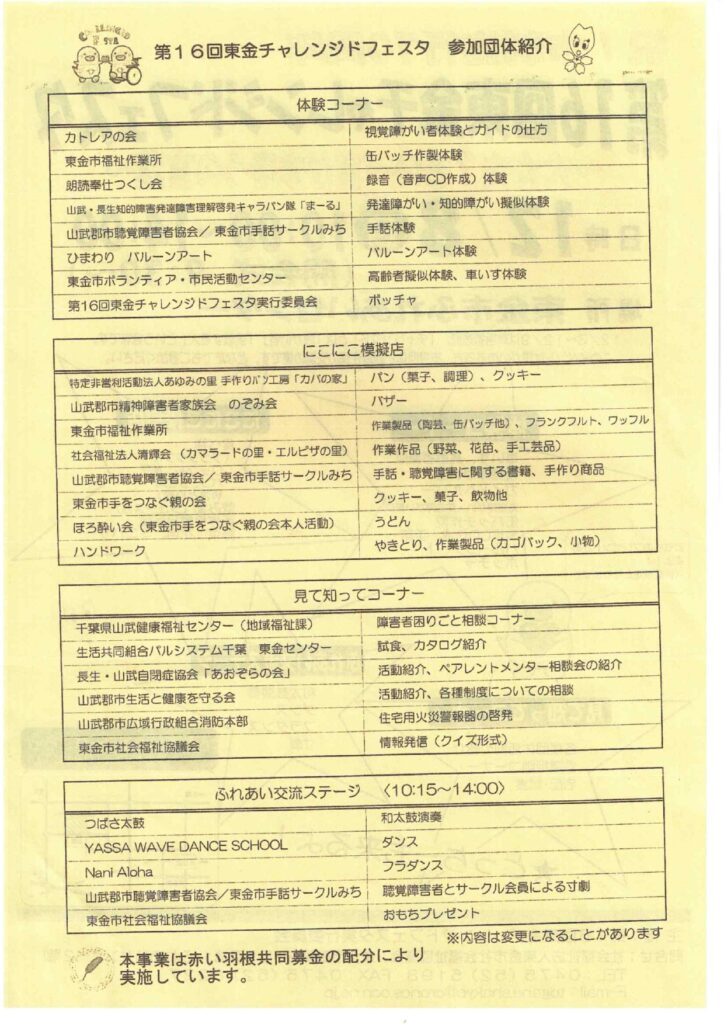 第16回東金チャレンジドフェスタ 参加団体紹介
体験コーナー
カトレアの会 視覚障がい者体験とガイドの仕方
東金市福祉作業所 缶バッチ作製体験
朗読奉仕つくし会 録音（音声CD作成）体験
山武・長生知的障害発達障害理解啓発キャラバン隊「まーる」 発達障がい・知的障がい擬似体験
山武郡市聴覚障害者協会／東金市手話サークルみち 手話体験
ひまわり バルーンアート バルーンアート体験
東金市ボランティア・市民活動センター 高齢者擬似体験、車いす体験
第16回東金チャレンジドフェスタ実行委員会 ボッチャ
にこにこ模擬店
特定非営利活動法人あゆみの里 手作りパン工房「カバの家」 パン（菓子、調理）、クッキー
山武郡市精神障害者家族会 のぞみ会 バザー
東金市福祉作業所 作業製品（陶芸、缶バッチ他）、フランクフルト、ワッフル
社会福祉法人清輝会（カマラードの里・エルピザの里） 作業作品（野菜、花苗、手工芸品）
山武郡市聴覚障害者協会／東金市手話サークルみち 手話・聴覚障害に関する書籍、手作り商品
東金市手をつなぐ親の会 クッキー、菓子、飲物他
ほろ酔い会（東金市手をつなぐ親の会本人活動） うどん
ハンドワーク やきとり、作業製品（カゴバック、小物）
見て知ってコーナー
千葉県山武健康福祉センター（地域福祉課） 障害者困りごと相談コーナー
生活共同組合パルシステム千葉 東金センター 試食、カタログ紹介
長生・山武自閉症協会「あおぞらの会」 活動紹介、ペアレントメンター相談会の紹介
山武郡市生活と健康を守る会 活動紹介、各種制度についての相談
山武郡市広域行政組合消防本部 住宅用火災警報器の啓発
東金市社会福祉協議会 情報発信（クイズ形式）
ふれあい交流ステージ 〈10:15～14:00〉
つばさ太鼓 和太鼓演奏
YASSA WAVE DANCE SCHOOL ダンス
Nani Aloha フラダンス
山武郡市聴覚障害者協会／東金市手話サークルみち 聴覚障害者とサークル会員による寸劇
東金市社会福祉協議会 おもちプレゼント
※内容は変更になることがあります
本事業は赤い羽根共同募金の配分により
実施しています。